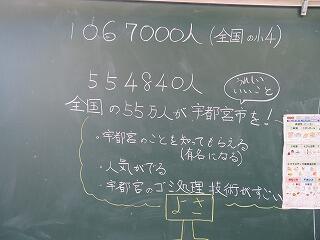 1067000人(全国の小4)
554840人
うれしい
いいこと
全国の55万人が宇都宮市を!
・宇都宮のことを知ってもらえる
(有名になる)
・人気がでる
・宇都宮のゴミ処理技術がすごい
よさ